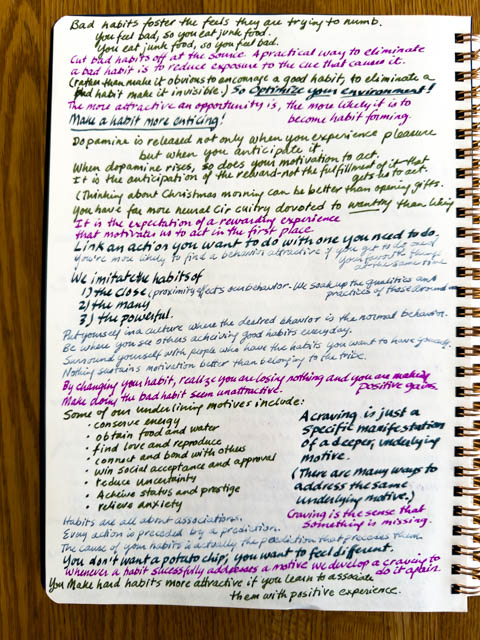 Bad habits foster the feels they are trying to numb.
You feel bad, so you eat junk food.
You eat junk food, so you feel bad.
Cut bad habits off at the source. A practical way to eliminate
a bad habit is to reduce exposure to the cue that causes it.
(rather than make it obvious to encourage a good habit, to eliminate a
bad habit make it invisible.) So Optimize your environment!
The more attractive an opportunity is, the more likely it is to
become habit forming.
Make a habit more enticing!
Dopamine is released not only when you experience pleasure
but when you anticipate it.
When dopamine rises, so does your motivation to act.
It is the anticipation of the reward-not the fulfillment of it-that
gets us to act.
(Thinking about Christmas morning can be better than opening gifts.
You have far more neural circuitry devoted to wanting than liking
It is the expectation of a rewarding experience
that motivates us to act in the first place
Link an action you want to do with one you need to do.
You're more likely to find a behavior attractive if you get to do one of
your favorite things
at the same time.
We imitate the habits of
1) the close (proximity effects our behavior - We soak up the qualities and
practices of those around
2) the many
3) the powerful.
Put yourself in a culture where the desired behavior is the normal behavior.
Be where you see others achieving good habits everyday.
Surround yourself with people who have the habits you want to have yourself.
Nothing sustains motivation better than belonging to the tribe.
By changing your habit, realize you are losing nothing and you are making
positive gains.
Make doing the bad habit seem unattractive.
Some of our underlining motives include:
• conserve energy
• obtain food and water
• find love and reproduce
• connect and bond with others
• win social acceptance and approval
• reduce uncertainty
• Achieve status and prestige
• relieve anxiety
A craving is just a
specific manifestation
of a deeper, underlying
motive.
(There are many ways to
address the same
underlying motive.)
Craving is the sense that
something is missing.
Habits are all about associations.
Every action is preceded by a prediction.
The cause of your habits is actually the prediction that precedes them
You don't want a potato chip, you want to feel different.
Whenever a habit sucessfully addresses a motive we develop a craving to
do it again.
You Make hard habits more attractive if you learn to associate
them with positive experience.